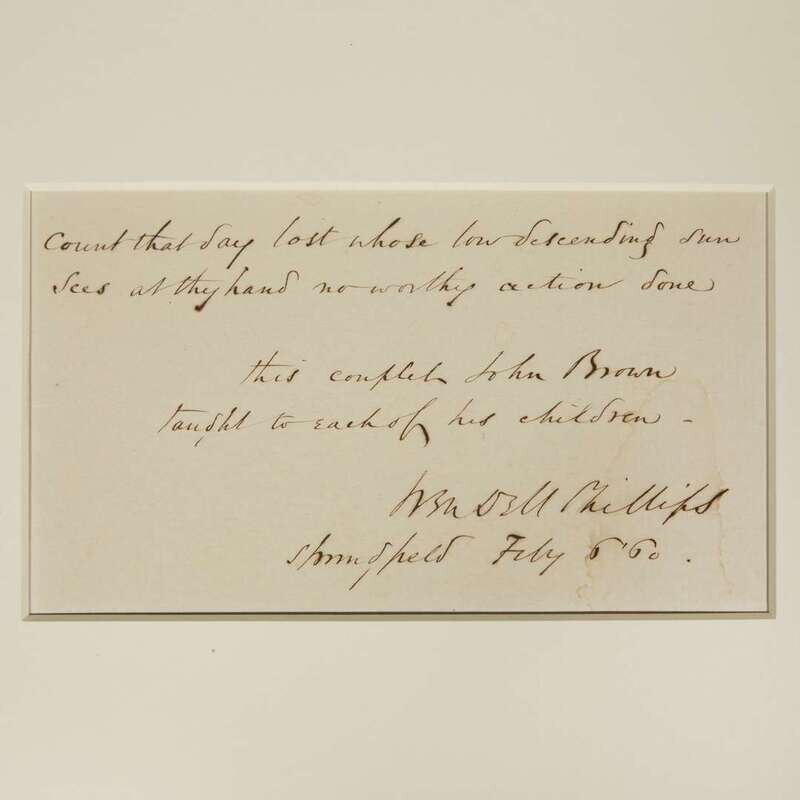 Count that day lost whose low descending sun
Sees at thy hand no worthy action done
this couplet John Brown
taught to each of his children -
Wendell Phillips
Springfield Feby 6 '60.